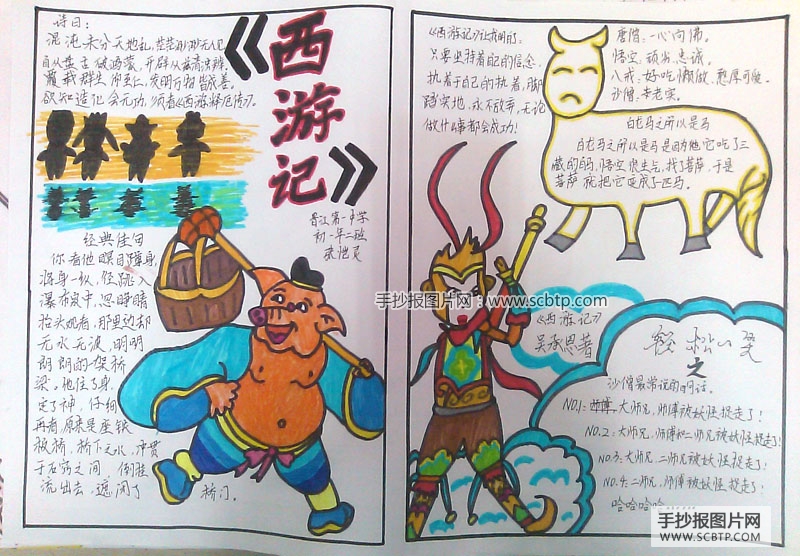 诗曰：
混沌未分天地乱，茫茫渺渺无人见
自从盘古破鸿蒙，开辟从兹清浊辨。
覆载群生仰至仁，发明万物皆成善。
欲知造化会元功，须看《西游释厄传》。
《西游记》
晋江第一中学
初一年二班
经典佳句
你看他瞑目蹲身，
将身一纵，径跳入
瀑布泉中，忽睁睛
抬头观看，那里边却
无水无波，明明
朗朗的一架桥
梁。他住了身，
定了神，仔细
再看，原来是座铁
板桥，桥下之水，冲贯
于石窍之间，倒挂
流出去，遮闭了 桥门。
《西游记》让我明白：
只要坚持着自己的信念，
执着于自己的执着，脚
踏实地，永不放弃，无论
做什么事都会成功！
唐僧：一心向佛。
悟空：顽劣，忠诚。
八戒：好吃懒做，憨厚可爱。
沙僧：李老实。
白龙马之所以是马
白龙马之所以是马是因为他它吃了三
藏的白马，悟空很生气，找了菩萨，于是
菩萨就把它变成了匹马。
手抄报图片网：www.scbtp.com
《西游记》
吴承恩著
轻松一笑
之
沙僧最常说的4句话。
NO.1：大师兄，师傅被妖怪捉走了！
NO.2：大师兄，师傅和二师兄被妖怪捉走了！
NO.3：大师兄，二师兄被妖怪捉走了！
NO.4：二师兄，师傅被妖怪捉走了！
哈哈哈哈
手抄报图片网
WWW.SCBTP.COM